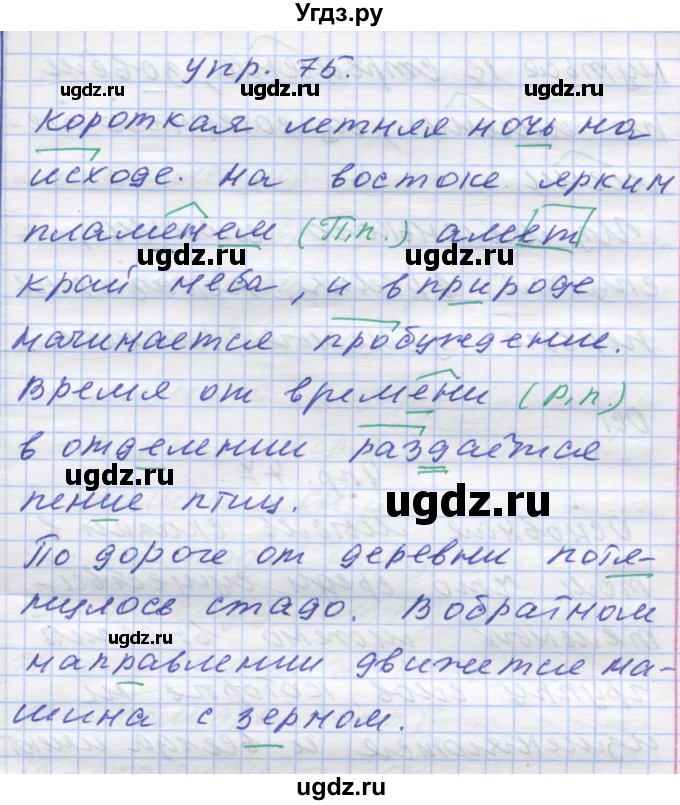 Угдз.ру
упр. 75.
Короткая летняя ночь на
исходе. На востоке ярким
пламенем (П,п.) алеет
край неба, и в природе
начинается пробуждение.
Время от времени (Р,п.)
в отделении раздаётся
пение птиц.
По дороге от деревни потя-
нулось стадо. В обратном
направлении движется ма-
шина с зерном.
ugdz.ru
ugdz.ru
ugdz.ru
ugdz.ru
ugdz.ru
ugdz.ru
ugdz.ru
ugdz.ru
ugdz.ru
ugdz.ru
ugdz.ru